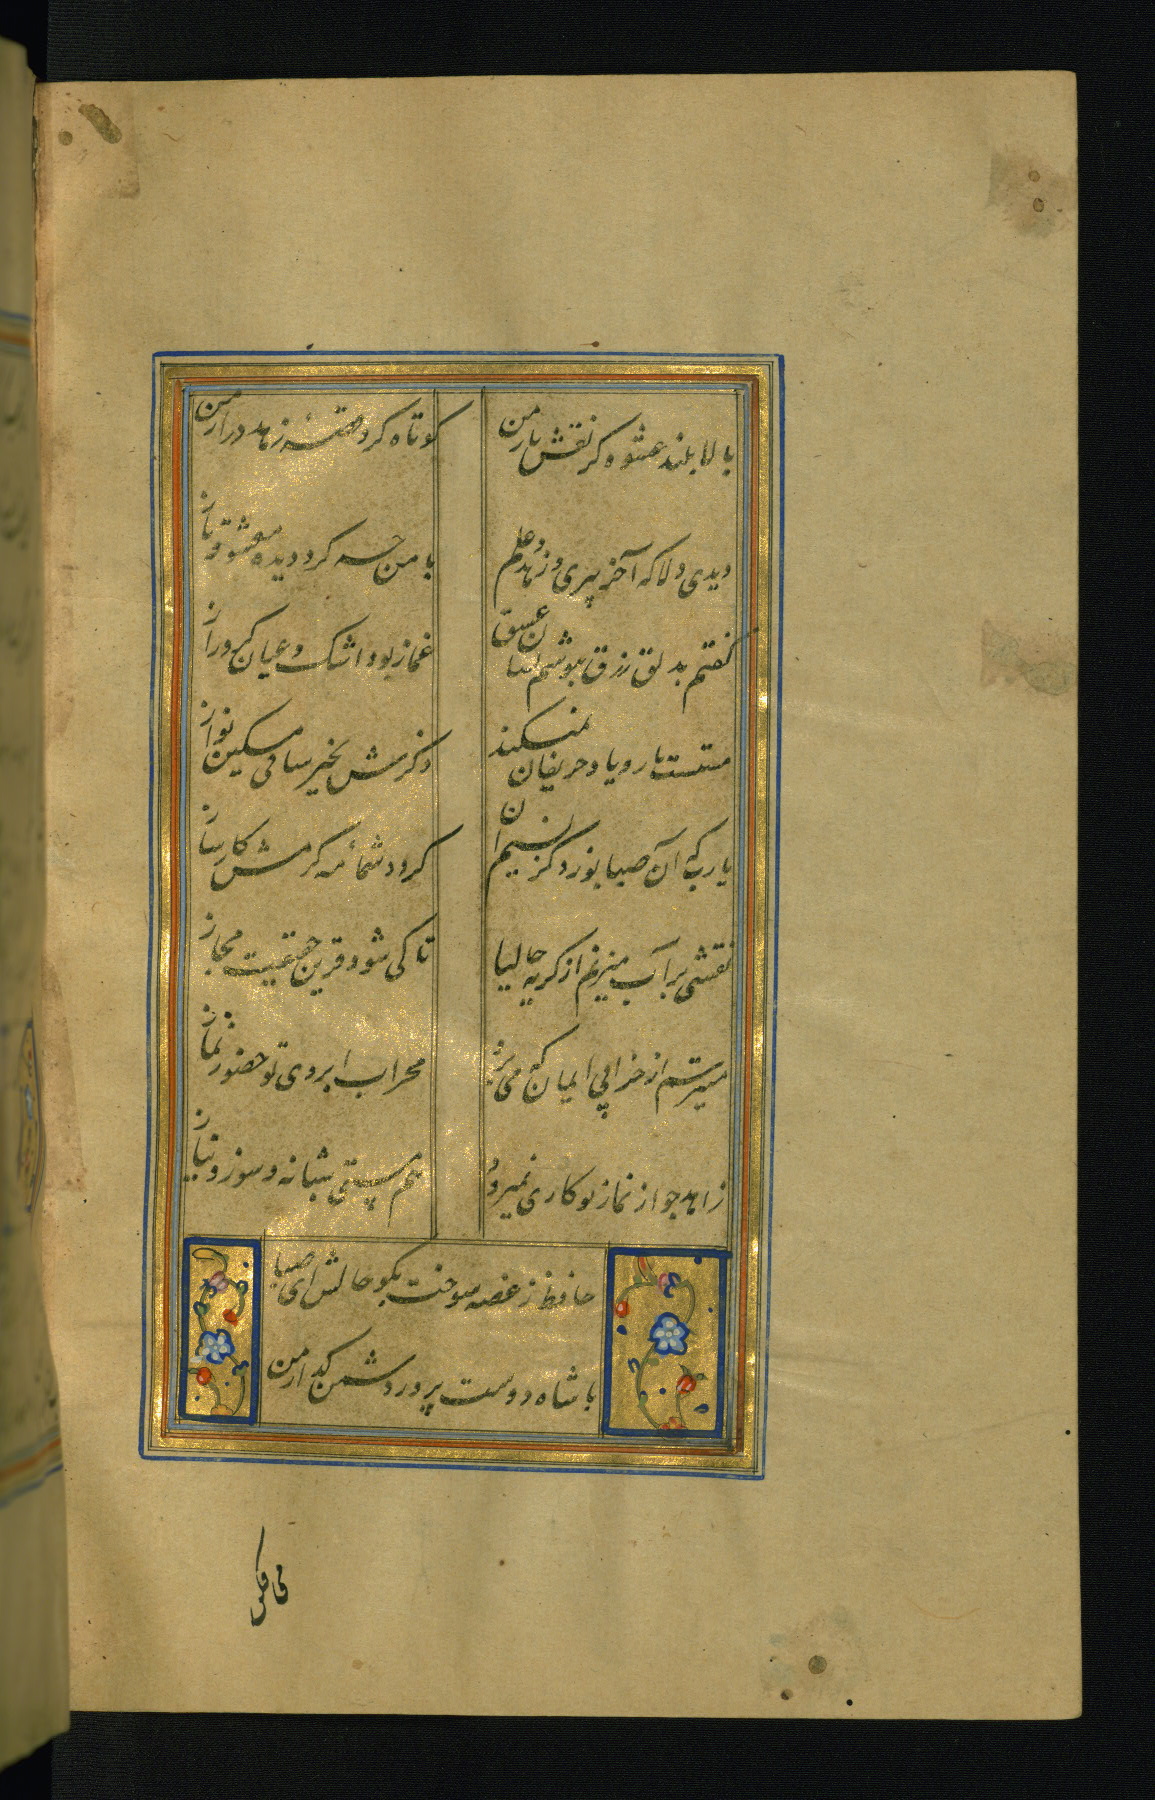 بالا بلند عشوه گر نقش باز من
کوتاه کرد قصه زهد دراز من
دیدی دلا که آخر پیری و زهد و علم
با من چه کرد دیده معشوقه باز
گفتم بدلق زرق بپوشم نشان عشق
غماز بود اشک و عیان کرد راز
مستست یار و یاد حریفان نمیکند
ذکرش بخیر ساقی مسکین نواز
یارب کی آن صبا بوزد کز نسیم آن
گردد شمامه کرمش کارساز
نقشی بر آب میزنم از گریه حالیا
تا کی شود قرین حقیقت مجاز
میترسم از خرابی ایمان که می برد
محراب ابروی تو حضور نماز
زاهد چو از نماز تو کاری نمیرود
هم مستی شبانه و سوز و نیاز
حافظ ز غصه سوخت بگو حالش ای صبا
با شاه دوست پرور دشمن گداز من
می فکن